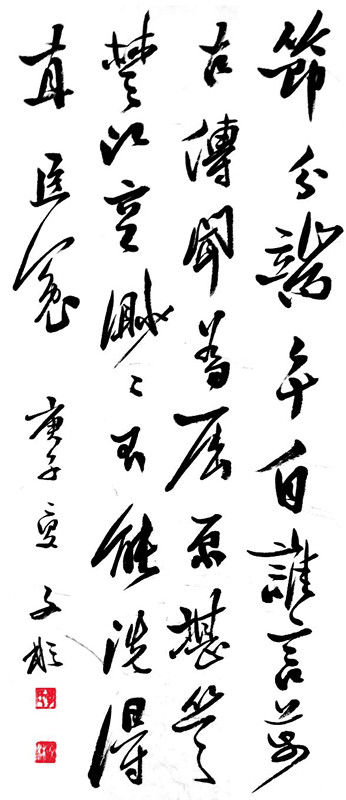 節分端午自誰言萬
古傳聞為屈原堪笑
楚江空渺々不能洗得
直臣冤
庚子夏